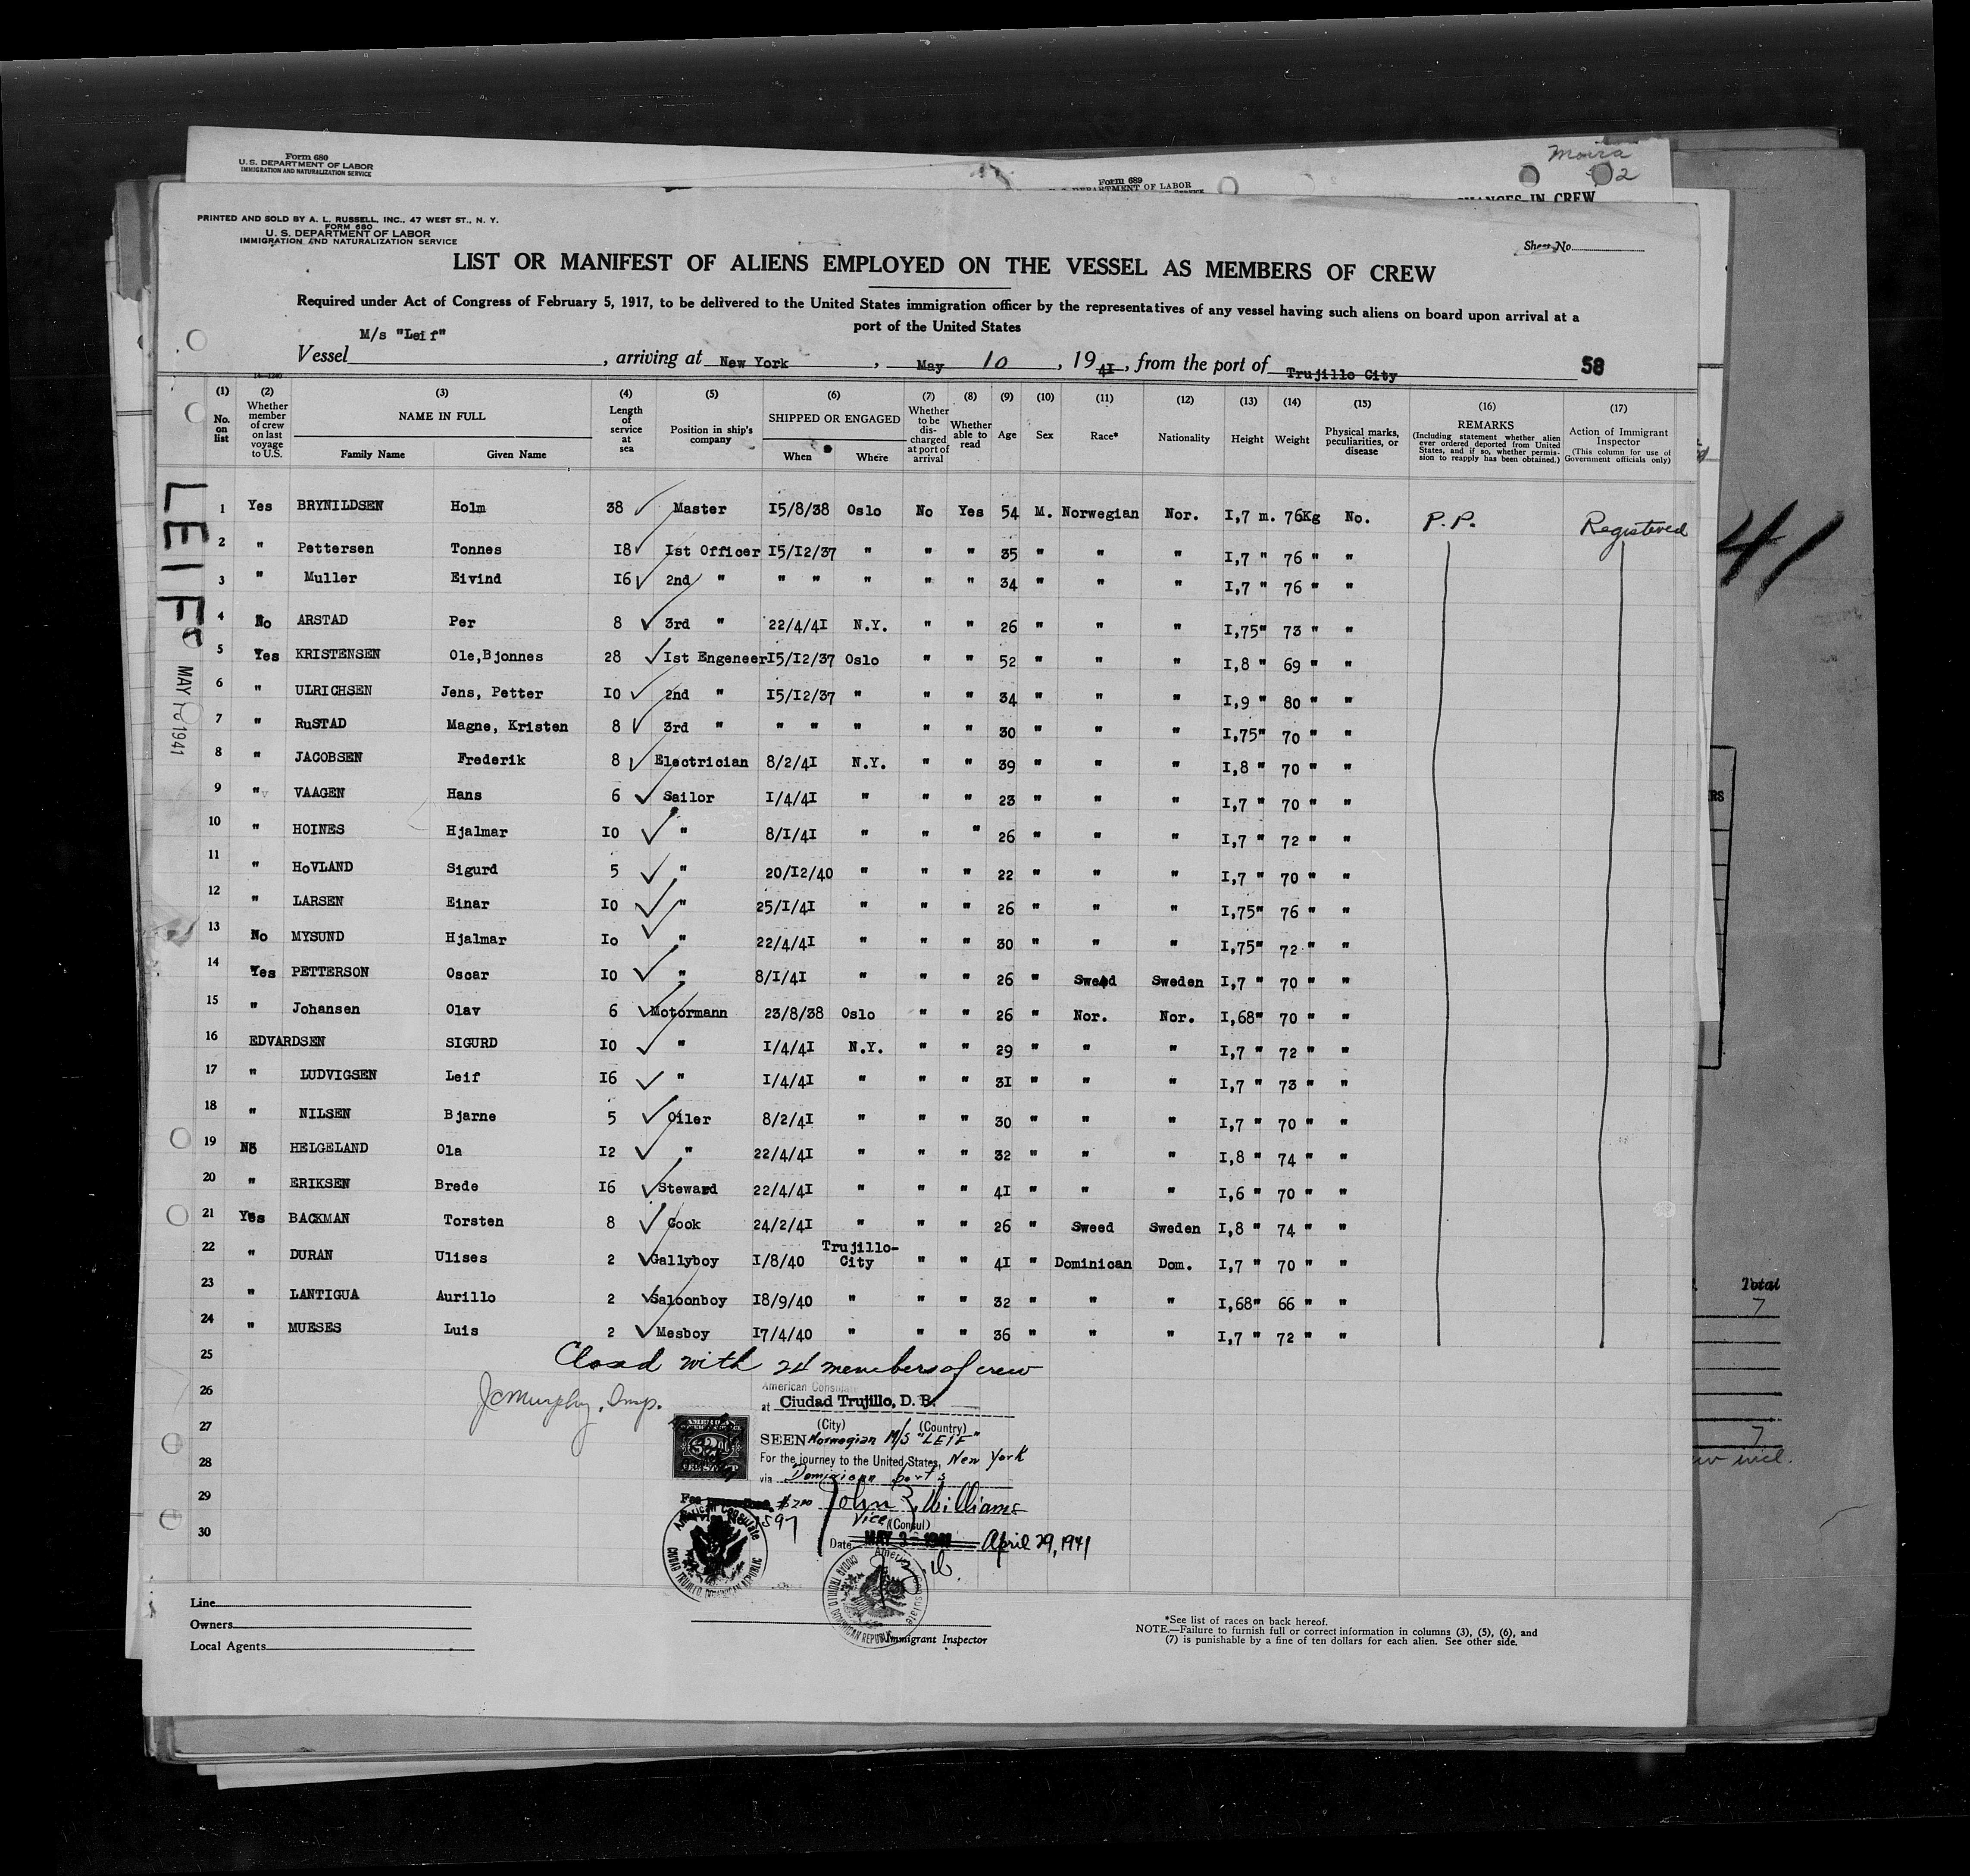 Form 680
U. S. DEPARTMENT OF LABOR
IMMIGRATION AND NATURALIZATION SERVICE
Moira
2
Form 689
DEPARTMENT OF LABOR
CHANGES IN CREW
PRINTED AND SOLD BY A. L. RUSSELL, INC., 47 WEST ST., N. Y.
FORM 680
U. S. DEPARTMENT OF LABOR
IMMIGRATION AND NATURALIZATION SERVICE
Sheet No.
LIST OR MANIFEST OF ALIENS EMPLOYED ON THE VESSEL AS MEMBERS OF CREW
Required under Act of Congress of February 5, 1917, to be delivered to the United States immigration officer by the representatives of any vessel having such aliens on board upon arrival at a
port of the United States
Vessel M/s "Leif", arriving at New York, May 10, 1941, from the port of Trujillo City 58
14-1240
(1) No. on list
(2) Whether member of crew on last voyage to U.S.
(3) NAME IN FULL Family Name Given Name
(4) Length of service at sea
(5) Position in ship's company
(6) SHIPPED OR ENGAGED When Where
(7) Whether to be discharged at port of arrival
(8) Whether able to read
(9) Age
(10) Sex
(11) Race*
(12) Nationality
(13) Height
(14) Weight
(15) Physical marks, peculiarities, or disease
(16) REMARKS (Including statement whether alien ever ordered deported from United States, and if so, whether permission to reapply has been obtained.)
(17) Action of Immigrant Inspector (This column for use of Government officials only)
1 Yes BRYNILDSEN Holm 38 ✓ Master I5/8/38 Oslo No Yes 54 M. Norwegian Nor. I,7 m. 76Kg No. P.P. Registered
2 " Pettersen Tonnes I8 ✓ Ist Officer I5/I2/37 " " " 35 " " " I,7 " 76 " "
3 " Muller Eivind I6 ✓ 2nd " " " " " " 34 " " " I,7 " 76 " "
4 No ARSTAD Per 8 ✓ 3rd " 22/4/4I N.Y. " " 26 " " " I,75" 73 " "
5 Yes KRISTENSEN Ole,Bjonnes 28 ✓ Ist Engeneer I5/I2/37 Oslo " " 52 " " " I,8 " 69 " "
6 " ULRICHSEN Jens, Petter IO ✓ 2nd " I5/I2/37 " " " 34 " " " I,9 " 80 " "
7 " RuSTAD Magne, Kristen 8 ✓ 3rd " " " " " " 30 " " " I,75" 70 " "
8 " JACOBSEN Frederik 8 ✓ Electrician 8/2/4I N.Y. " " 39 " " " I,8 " 70 " "
9 " VAAGEN Hans 6 ✓ Sailor I/4/4I " " " 23 " " " I,7 " 70 " "
10 " HOINES Hjalmar IO ✓ " 8/I/4I " " " 26 " " " I,7 " 72 " "
11 " HoVLAND Sigurd 5 ✓ " 20/I2/40 " " " 22 " " " I,7 " 70 " "
12 " LARSEN Einar IO ✓ " 25/I/4I " " " 26 " " " I,75" 76 " "
13 No MYSUND Hjalmar Io ✓ " 22/4/4I " " " 30 " " " I,75" 72 " "
14 Yes PETTERSON Oscar IO ✓ " 8/I/4I " " " 26 " Sweed Sweden I,7 " 70 " "
15 " Johansen Olav 6 ✓ Motormann 23/8/38 Oslo " " 26 " Nor. Nor. I,68" 70 " "
16 EDVARDSEN SIGURD IO ✓ " I/4/4I N.Y. " " 29 " " " I,7 " 72 " "
17 " LUDVIGSEN Leif I6 ✓ " I/4/4I " " " 3I " " " I,7 " 73 " "
18 " NILSEN Bjarne 5 ✓ Oiler 8/2/4I " " " 30 " " " I,7 " 70 " "
19 No HELGELAND Ola I2 ✓ " 22/4/4I " " " 32 " " " I,8 " 74 " "
20 " ERIKSEN Brede I6 ✓ Steward 22/4/4I " " " 4I " " " I,6 " 70 " "
21 Yes BACKMAN Torsten 8 ✓ Cook 24/2/4I " " " 26 " Sweed Sweden I,8 " 74 " "
22 " DURAN Ulises 2 ✓ Gallyboy I/8/40 Trujillo-City " " 4I " Dominican Dom. I,7 " 70 " "
23 " LANTIGUA Aurillo 2 ✓ Saloonboy I8/9/40 " " " 32 " " " I,68" 66 " "
24 " MUESES Luis 2 ✓ Mesboy I7/4/40 " " " 36 " " " I,7 " 72 " "
25
Closed with 24 members of crew
26
27
28
29
30
JCMurphy, Insp.
American Consulate
at Ciudad Trujillo, D. R.
(City) (Country)
SEEN Norwegian M/S "LEIF"
For the journey to the United States, New York
via Dominican ports
AMERICAN
$2
Fee $2.00
1597
John Williams
Vice (Consul)
Date MAY 2 - 1941 April 29, 1941
American Consulate
CIUDAD TRUJILLO, DOMINICAN REPUBLIC
American Consulate
CIUDAD TRUJILLO, DOMINICAN REPUBLIC
Immigrant Inspector
Line
Owners
Local Agents
*See list of races on back hereof.
NOTE.—Failure to furnish full or correct information in columns (3), (5), (6), and
(7) is punishable by a fine of ten dollars for each alien. See other side.
LEIF
MAY 10 1941
41
RS
Total
7
7
incl.